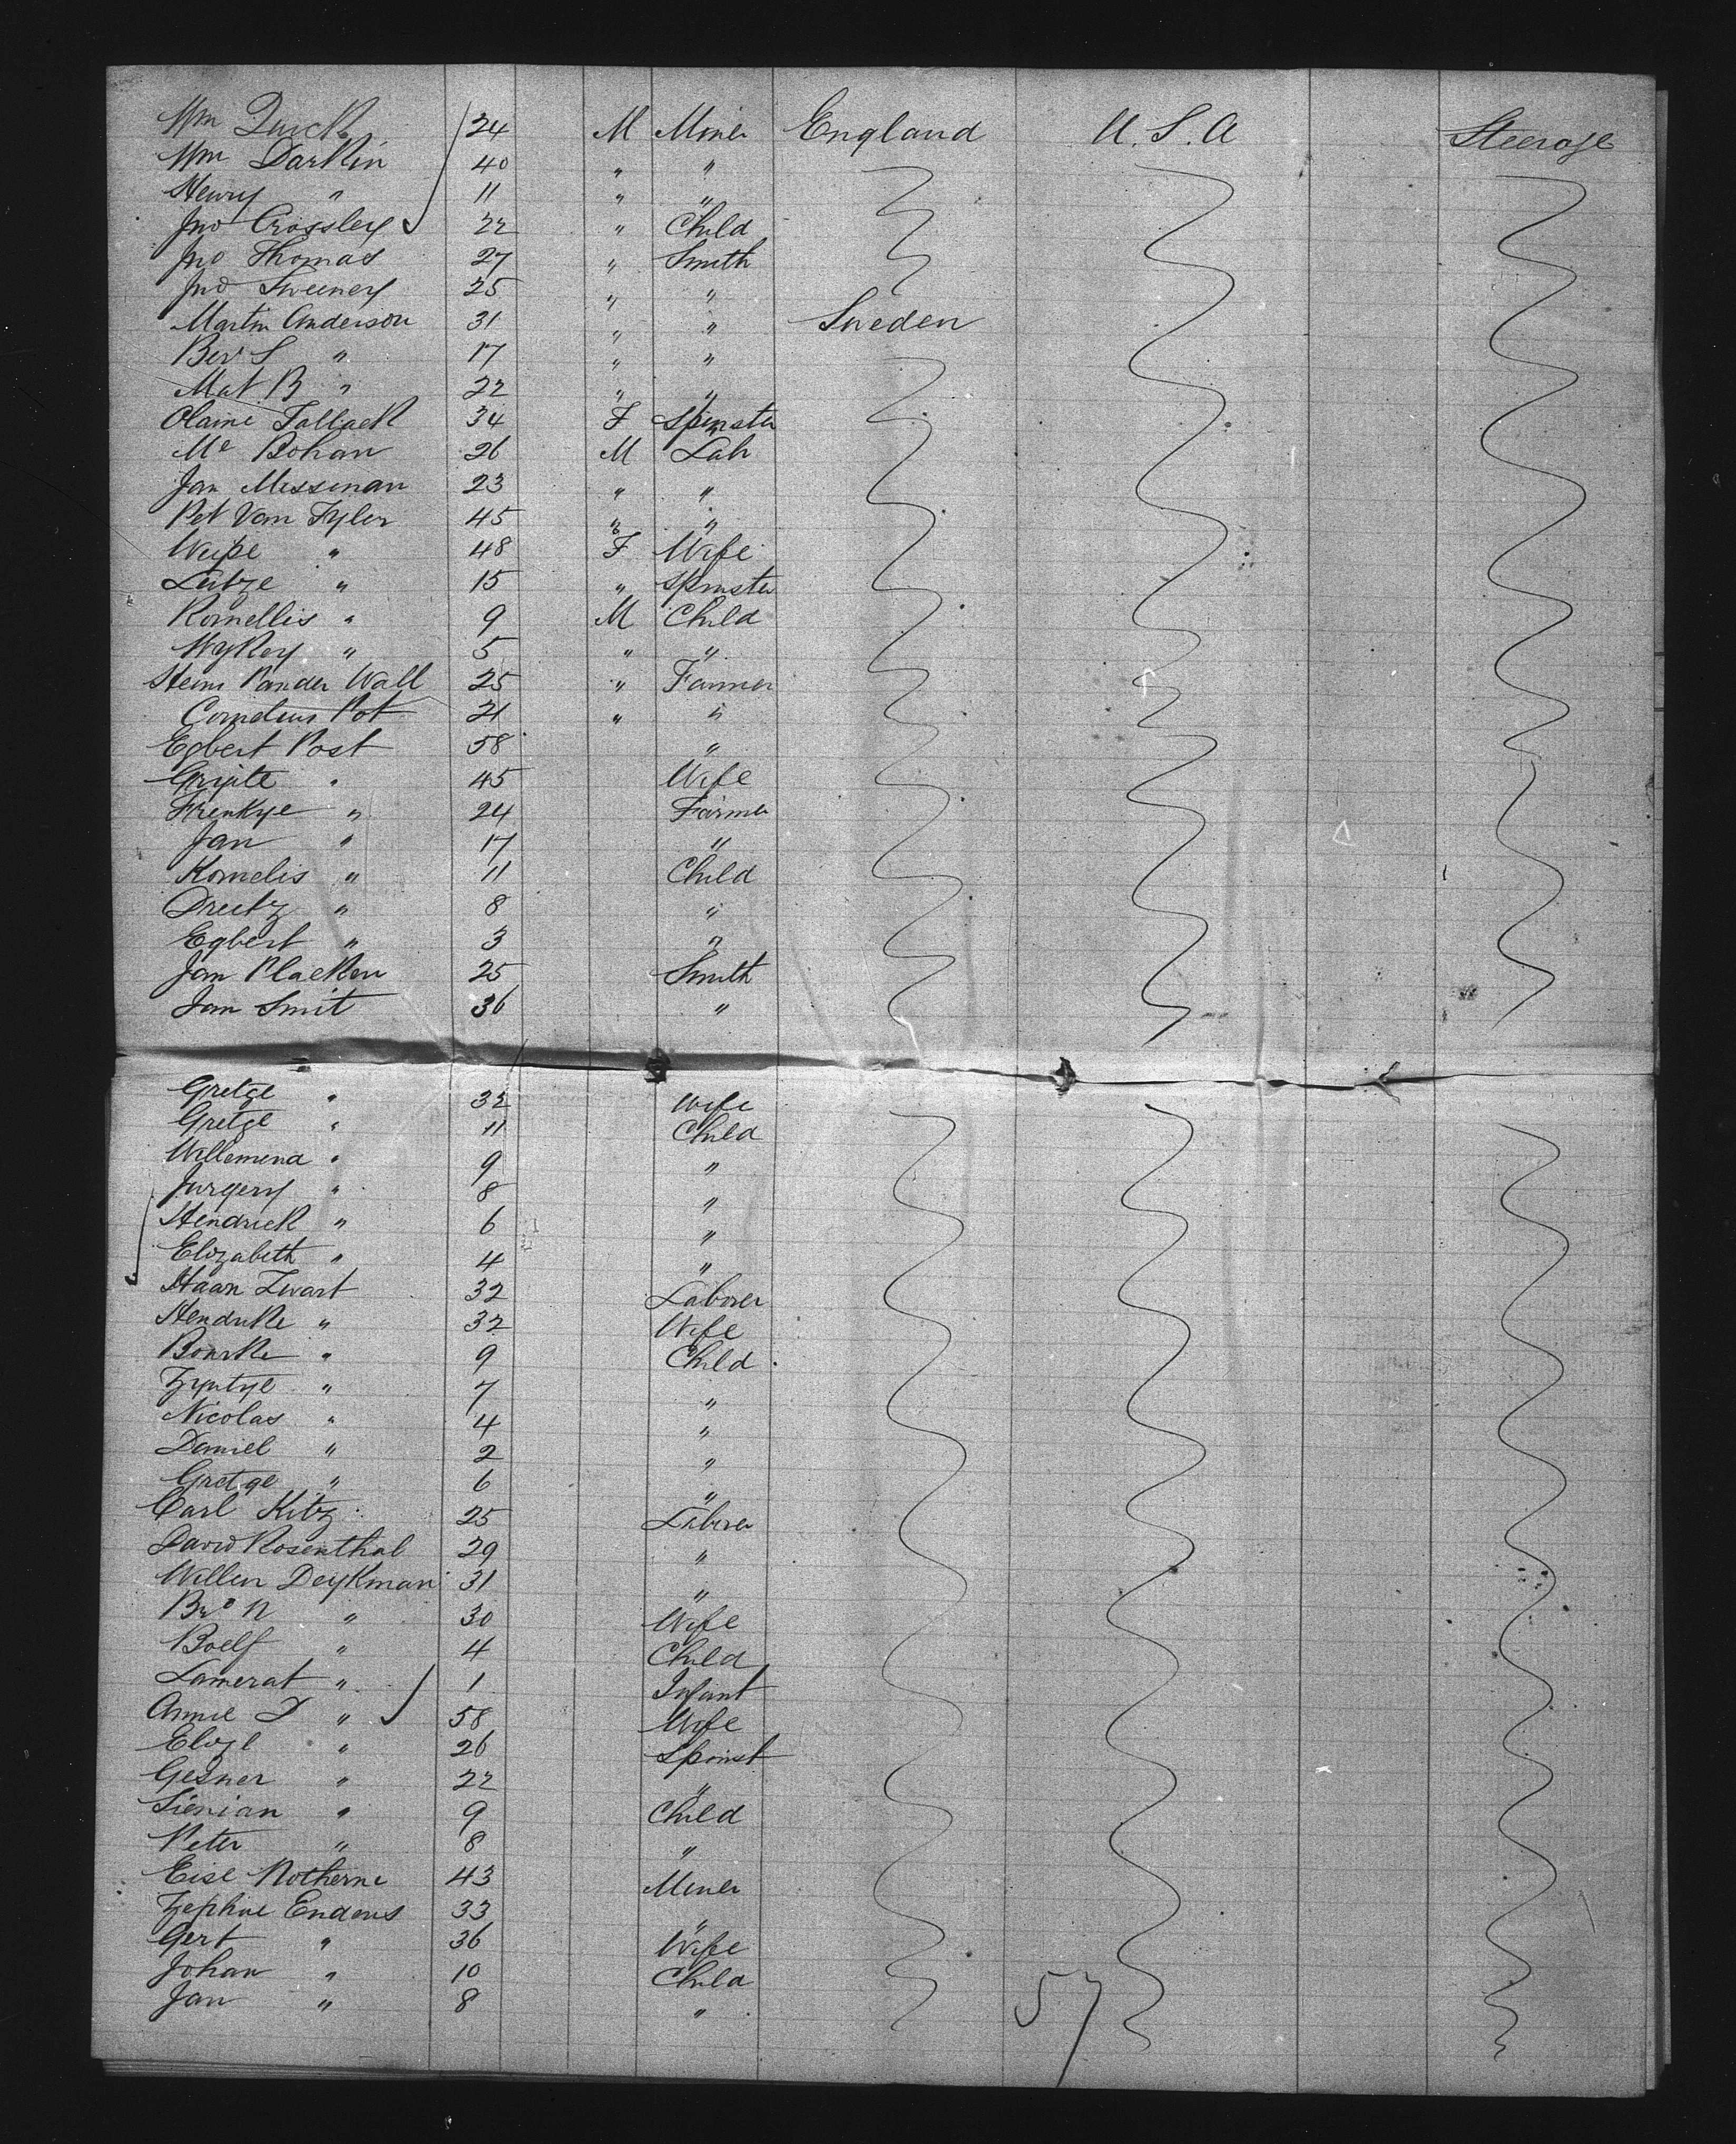 Wm Quick 24 M Miner England U.S.A Steerage
Wm Darkin 40 " "
Henry " 11 " "
Jno Crossley 22 " Child
Jno Thomas 27 " Smith
Jno Sweeney 25 " "
Martin Anderson 31 " " Sweden
Ber S " 17 " "
Mat B " 22 " "
Olaine Tallack 34 F Spinster
Mc Bohan 26 M Lab
Jan Missman 23 " "
Pet Van Tyler 45 " "
Weipe " 48 F Wife
Leitze " 15 " Spinster
Kornellis " 9 M Child
Wykey " 5 " "
Heim Vander Wall 25 " Farmer
Cornelius Pot 21 " "
Egbert Post 58 "
Griete " 45 Wife
Frenkye " 24 Farmer
Jan " 17 "
Kornelis " 11 Child
Dreetz " 8 "
Egbert " 3 "
Jan Placken 25 Smith
Jan Smit 36 "
Gretge " 32 Wife
Gretge " 11 Child
Willemena " 9 "
Jurgery " 8 "
Hendrick " 6 "
Elizabeth " 4 "
Haan Zwart 32 Laborer
Hendrike " 32 Wife
Bourke " 9 Child
Zyntye " 7 "
Nicolas " 4 "
Daniel " 2 "
Gretge " 6 "
Carl Kitz 25 Laborer
David Rosenthal 29 "
Willem Deykman 31 "
N " 30 Wife
Roelf " 4 Child
Lamerat " 1 Infant
Annie D " 58 Wife
Elize " 26 Spinst
Gesner " 22 "
Sienian " 9 Child
Peter " 8 "
Eise Notherne 43 Miner
Zephue Enders 33 "
Gert " 36 Wife
Johan " 10 Child
Jan " 8 "
57